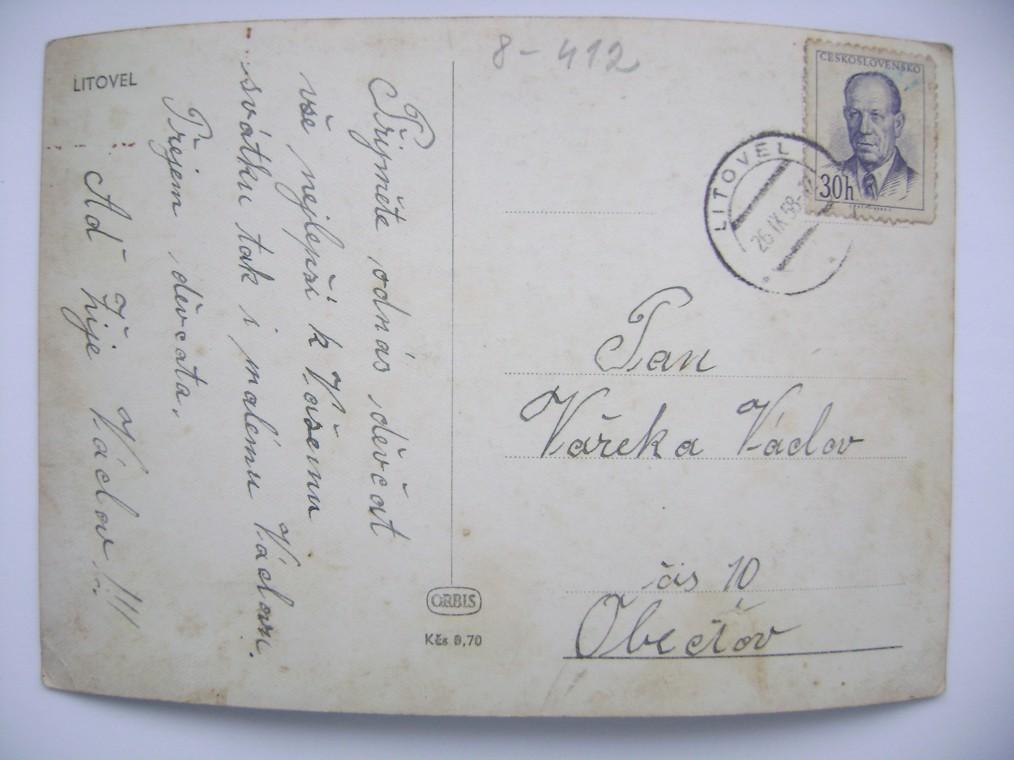 LITOVEL
8-412
ČESKOSLOVENSKO
30h
LITOVEL
26.IX.58
Přijměte odnás děvčat
vše nejlepší k Vašemu
svátku tak i malému Václavu.
Přejem děvčata.
Ať žije Václav!!!
Pan
Vařeka Václav
čís 10
Obectov
ORBIS
Kčs 0,70